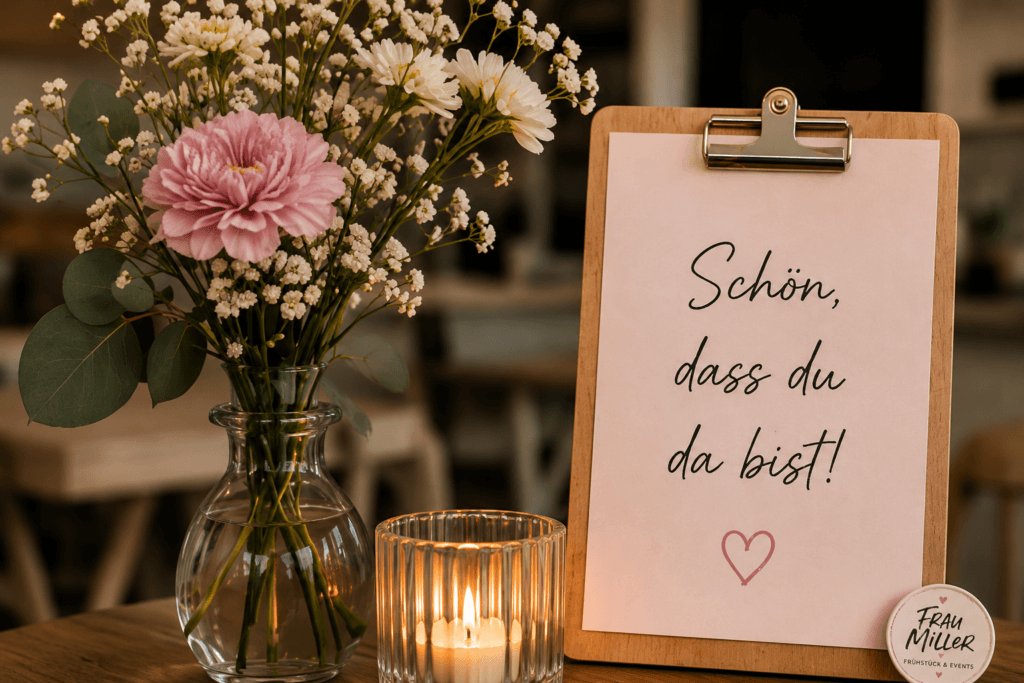 Schön,
dass du
da bist!
FRAU
MILLER
FRÜHSTÜCK & EVENTS